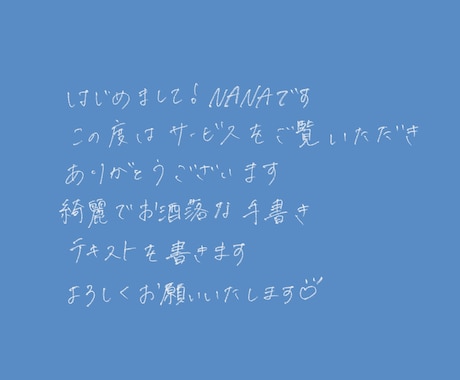 はじめまして!NANAです
この度はサービスをご覧いただき
ありがとうございます
綺麗でお洒落な手書き
テキストを書きます
よろしくお願いいたします☺